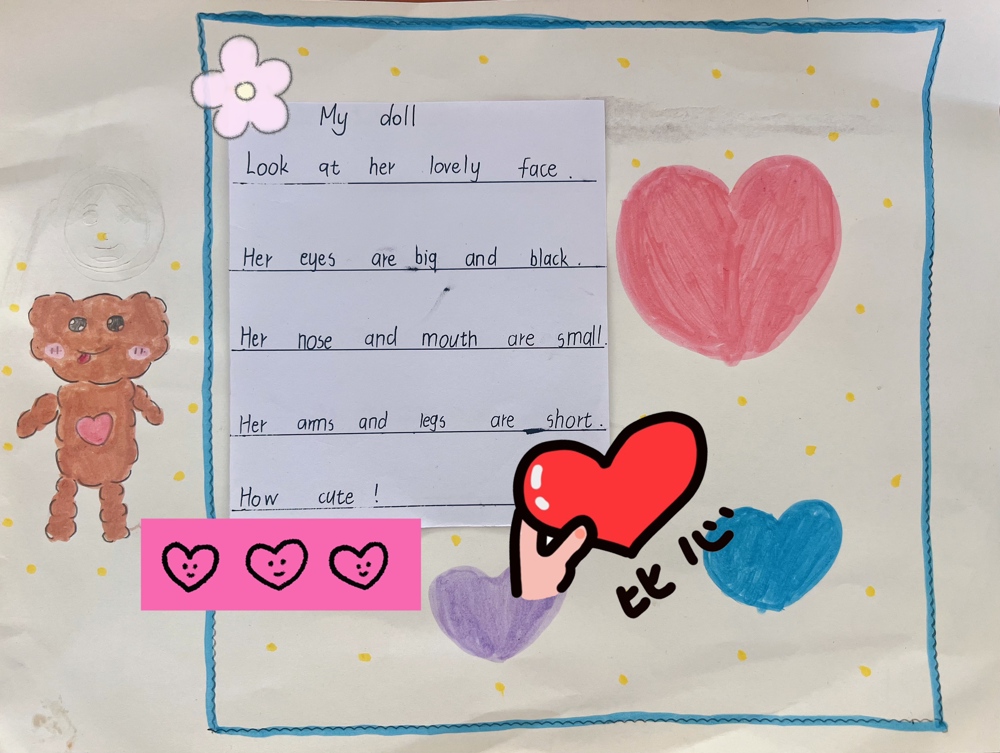 My doll
Look at her lovely face.
Her eyes are big and black.
Her nose and mouth are small.
Her arms and legs are short.
How cute!
比心